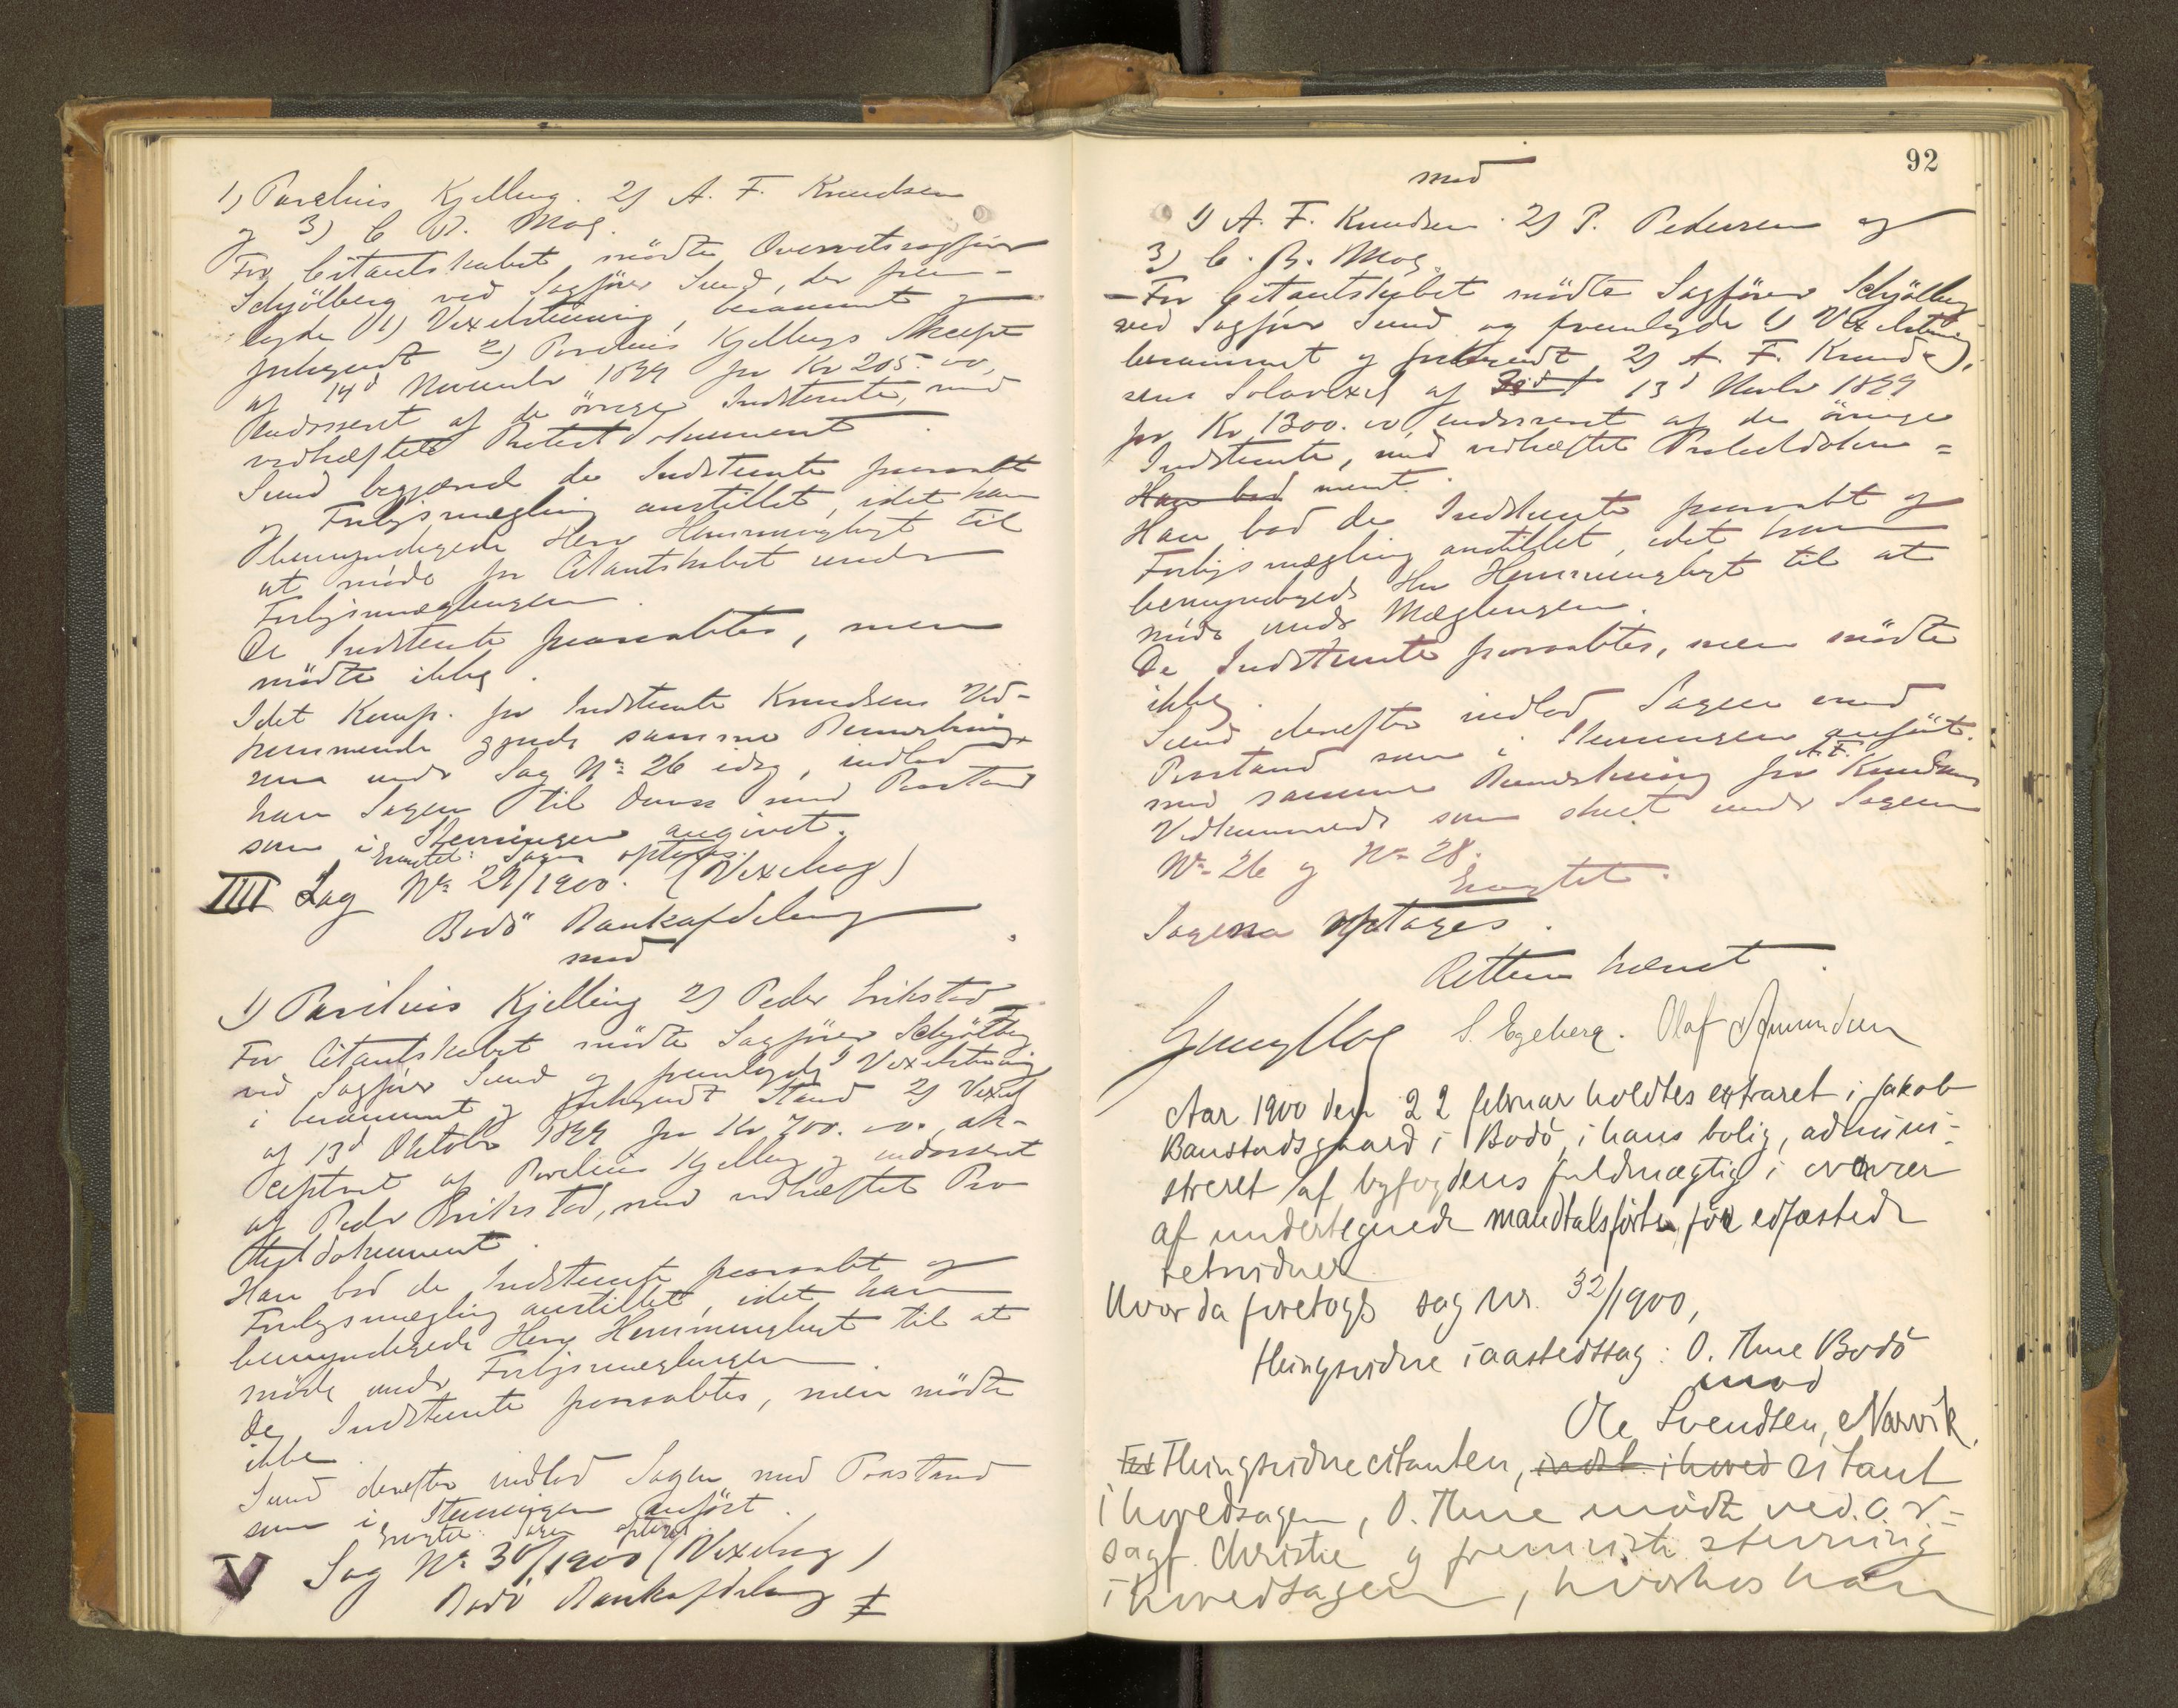 1) Parelius Kjelling. 2) A. F. Knudsen
og 3) C B. Moe.
For Citantskabet mödte Overretssagförer
Schjölberg ved Sagförer Sund, der frem-
lagde 1) Vexelstevning, berammet og
forkyndt 2) Parelius Kjellings Accept
af 14d November 1899 for Kr 205.00,
endosseret af de övrige Indstevnte, med
vedhæftet Protestdokument.
Sund begjærede de Indstevnte paaraabt
og Forligsmægling anstillet, idet han
bemyndigede Herr Hemminghyt til
at möde for Citantskabet under
Forligsmæglingen.
De Indstevnte paaraabtes, men
mödte ikke.
Idet Komp. for Indstevnte Knudsens Ved-
kommende gjorde samme Bemærkning
som under Sag No 26 idag, indlod
han Sagen til Doms med Paastand
som i Stevningen angivet.
Eragtet: Sagen optages.
IIII Sag No 29/1900. (Vexelsag)
Bodö Bankafdeling
mod
1) Parelius Kjelling 2) Peder Erikstad
For Citantskabet mödte Sagförer Schjölberg
ved Sagförer Sund og fremlagde 1) Vexelstevning
i berammet og forkyndt Stand 2) Vexel
af 13d Oktober 1899 for Kr 700.00, ak-
cepteret af Parelius Kjelling og endosseret
af Peder Erikstad, med vedhæftet Pro
testdokument.
Han bad de Indstevnte paaraabt og
Forligsmægling anstillet, idet han
bemyndigede Herr Hemminghyt til at
möde under Forligsmæglingen.
De Indstevnte paaraabtes, men mödte
ikke.
Sund derefter indlod Sagen med Paastand
som i Stevningen anfört.
Eragtet: Sagen optages.
V Sag No 30/1900 (Vexelsag)
Bodö Bankafdeling
92
mod
1) A. F. Knudsen. 2) P. Pedersen og
3) C. B. Moe.
- For Citantskabet mödte Sagförer Schjölberg
ved Sagförer Sund og fremlagde 1) Vexelstevning,
berammet og forkyndt 2) A. F. Knud-
sens Solavexel af 13d Novbr 1899
for Kr 1300.00, endosseret af de övrige
Indstevnte, med vedhæftet Protestdoku=
Han bad ment.
Han bad de Indstevnte paaraabt og
Forligsmægling anstillet, idet han
bemyndigede Hr Hemminghyt til at
möde under Mæglingen.
De Indstevnte paaraabtes, men mödte
ikke.
Sund derefter indlod Sagen med
Paastand som i Stevningen anfört.
med samme Bemærkning for A. F. Knudsens
Vedkommende som skeet under Sagerne
No 26 og No 28.
Eragtet:
Sagerne optages.
Retten hævet.
S. Egeberg. Olaf Amundsen
Aar 1900 den 22 februar holdtes extraret i Jakob
Banstadsgaard i Bodö, i hans bolig, admini-
streret af byfogdens fuldmægtig i overvær
af undertegnede mandtalsförte, för edfæstede
retsvidner
Hvorda foretoges sag nr. 32/1900,
thingsvidne i aastedssag: O. Thue Bodö
mod
Ole Svendsen, Narvik.
For Thingsvidnecitanten, indst. i hoved citant
i hovedsagen, O. Thue mödte ved o.r=
sagf. Christie og fremviste stevning
i hovedsagen, hvorhos han